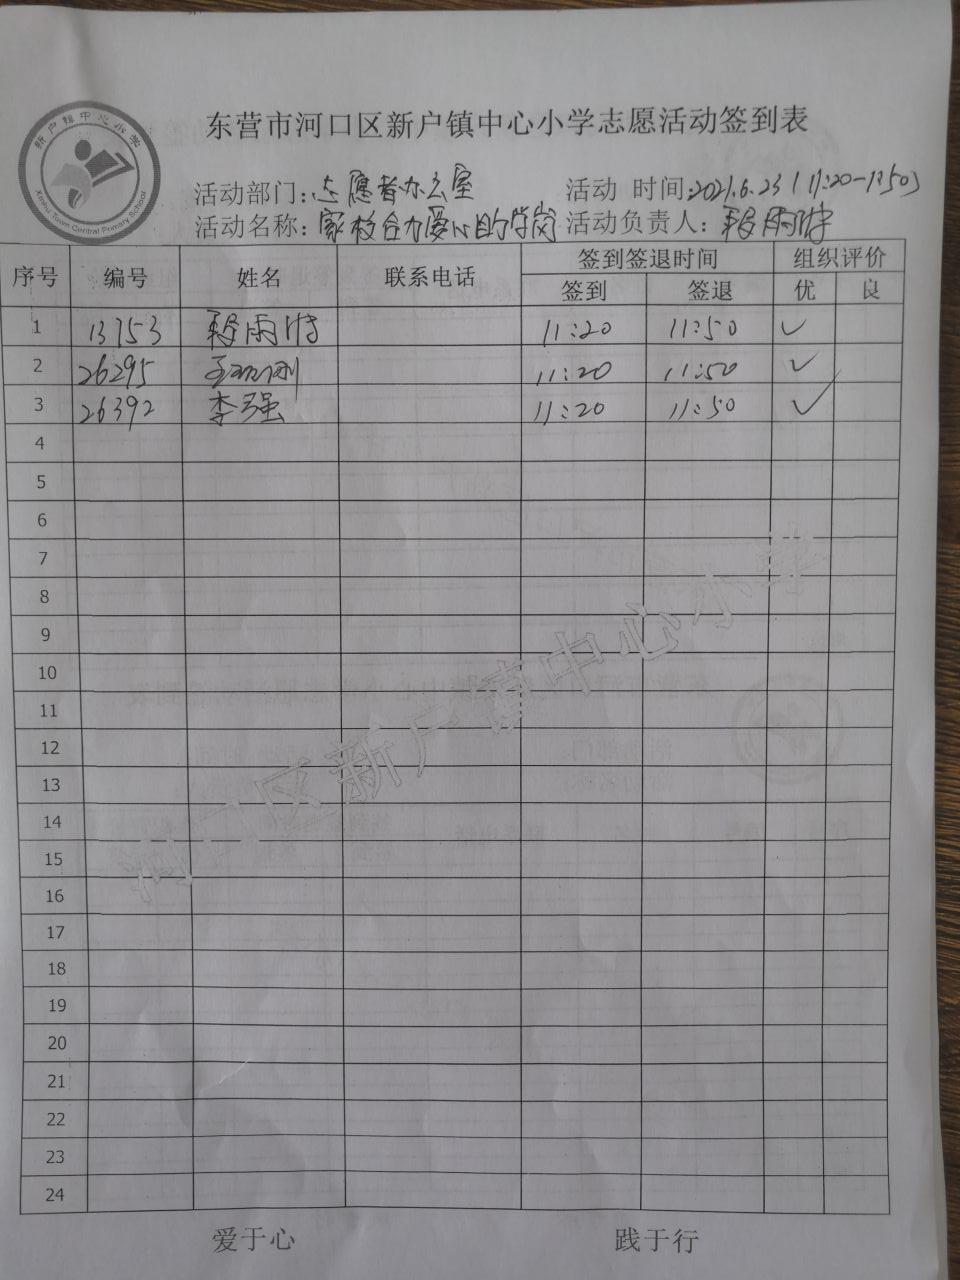 新户镇中心小学
Xinhu Town Central Primary School
东营市河口区新户镇中心小学志愿活动签到表
活动部门:志愿者办公室 活动 时间:2021.6.23(11:20-11:50)
活动名称:家校合力爱心助学岗 活动负责人:雨诗
序号 编号 姓名 联系电话 签到签退时间 组织评价
签到 签退 优 良
1 13753 雨诗 11:20 11:50 ✓
2 26295 王 刚 11:20 11:50 ✓
3 26392 李强 11:20 11:50 ✓
4
5
6
7
8
9
10
11
12
13
14
15
16
17
18
19
20
21
22
23
24
河口区新户镇中心小学
爱于心 践于行